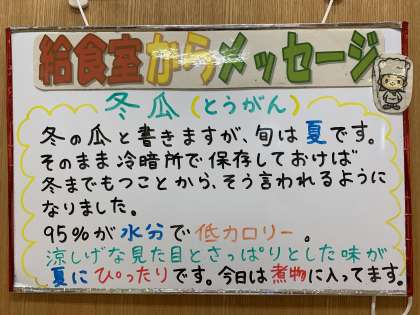 給食室からメッセージ
冬瓜(とうがん)
冬の瓜と書きますが、旬は夏です。
そのまま冷暗所で保存しておけば
冬までもつことから、そう言われるように
なりました。
95%が水分で低カロリー。
涼しげな見た目とさっぱりとした味が
夏にぴったりです。今日は煮物に入ってます。